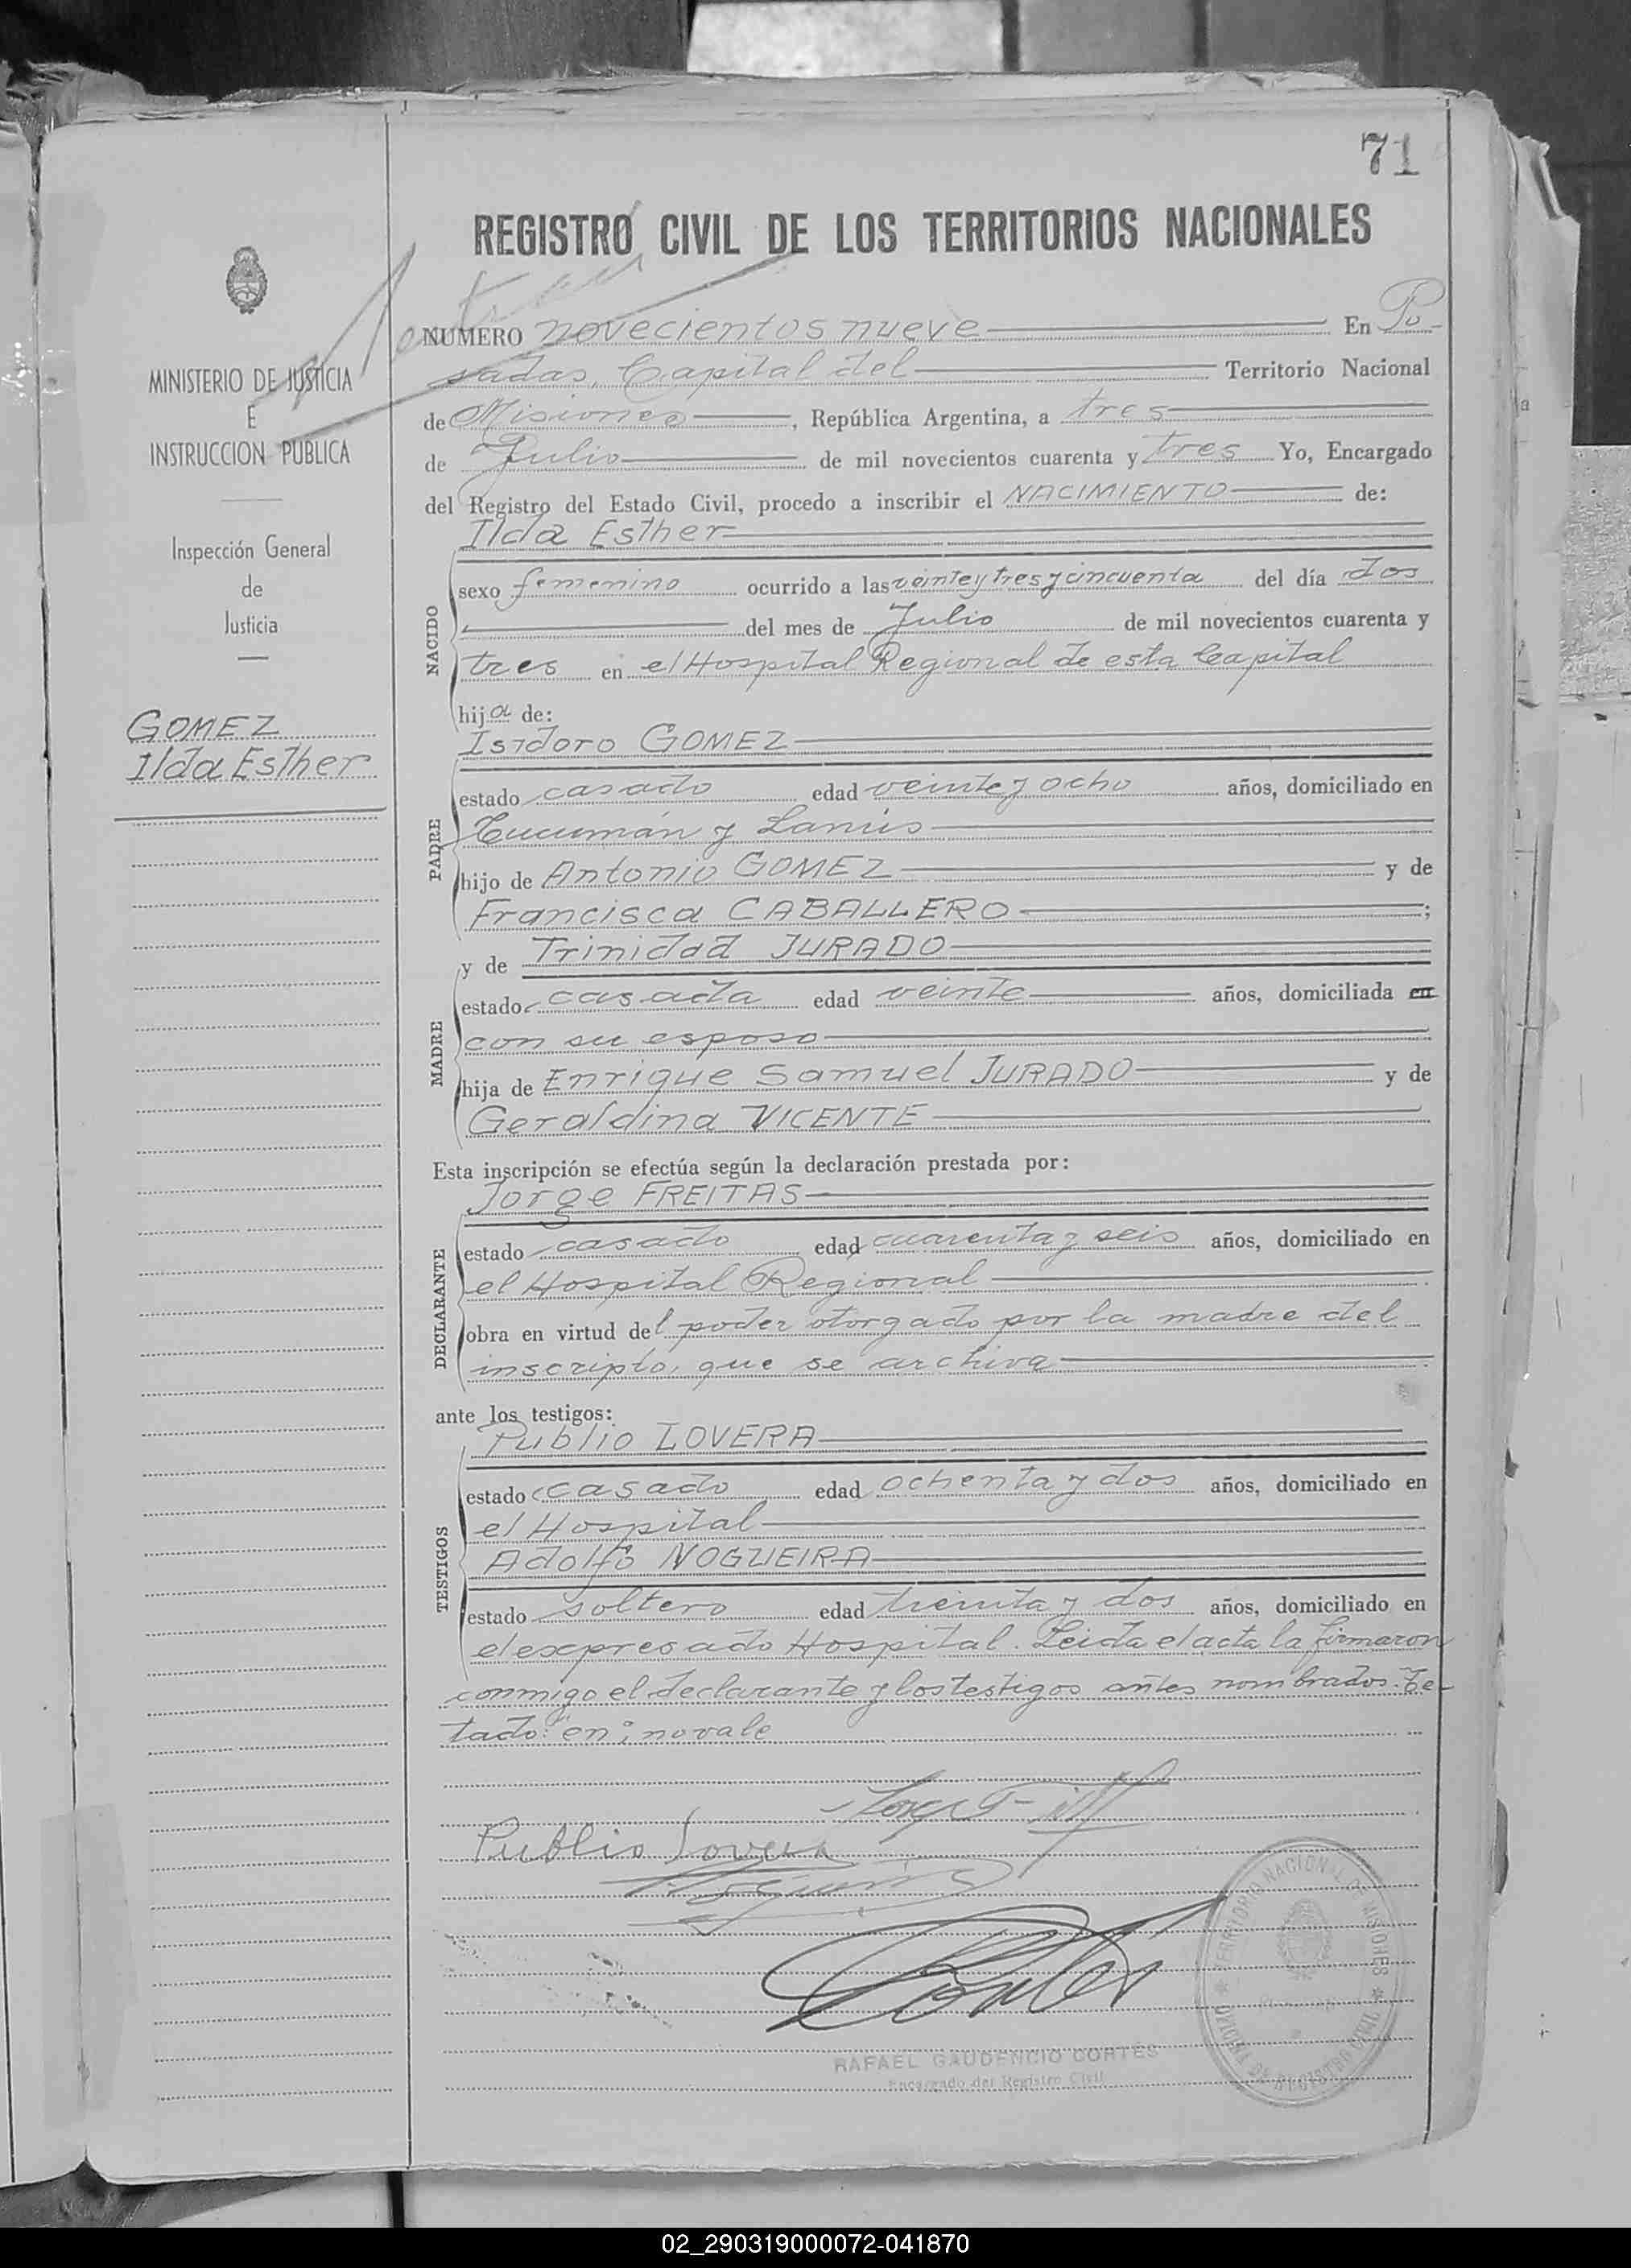 71
REGISTRO CIVIL DE LOS TERRITORIOS NACIONALES
MINISTERIO DE JUSTICIA
E
INSTRUCCION PUBLICA
Inspección General
de
Justicia
GOMEZ
Ilda Esther
NUMERO novecientos nueve En Po-
sadas, Capital del Territorio Nacional
de Misiones, República Argentina, a tres
de Julio de mil novecientos cuarenta y tres Yo, Encargado
del Registro del Estado Civil, procedo a inscribir el NACIMIENTO de:
Ilda Esther
NACIDO
sexo femenino ocurrido a las veinte y tres y cincuenta del día dos
del mes de Julio de mil novecientos cuarenta y
tres en el Hospital Regional de esta Capital
hija de:
Isidoro GOMEZ
PADRE
estado casado edad veinte y ocho años, domiciliado en
Tucumán y Lanús
hijo de Antonio GOMEZ y de
Francisca CABALLERO;
y de Trinidad JURADO
MADRE
estado casada edad veinte años, domiciliada en
con su esposo
hija de Enrique Samuel JURADO y de
Geraldina VICENTE
Esta inscripción se efectúa según la declaración prestada por:
Jorge FREITAS
DECLARANTE
estado casado edad cuarenta y seis años, domiciliado en
el Hospital Regional
obra en virtud del poder otorgado por la madre del
inscripto, que se archiva
ante los testigos:
Publio LOVERA
TESTIGOS
estado casado edad ochenta y dos años, domiciliado en
el Hospital
Adolfo NOGUEIRA
estado soltero edad treinta y dos años, domiciliado en
el expresado Hospital. Leida el acta la firmaron
conmigo el declarante y los testigos antes nombrados. Te-
tado: "en"; no vale
Publio Lovera
Cortés
RAFAEL GAUDENCIO CORTÉS
Encargado del Registro Civil
TERRITORIO NACIONAL DE MISIONES
OFICINA DE REGISTRO CIVIL
02_290319000072-041870